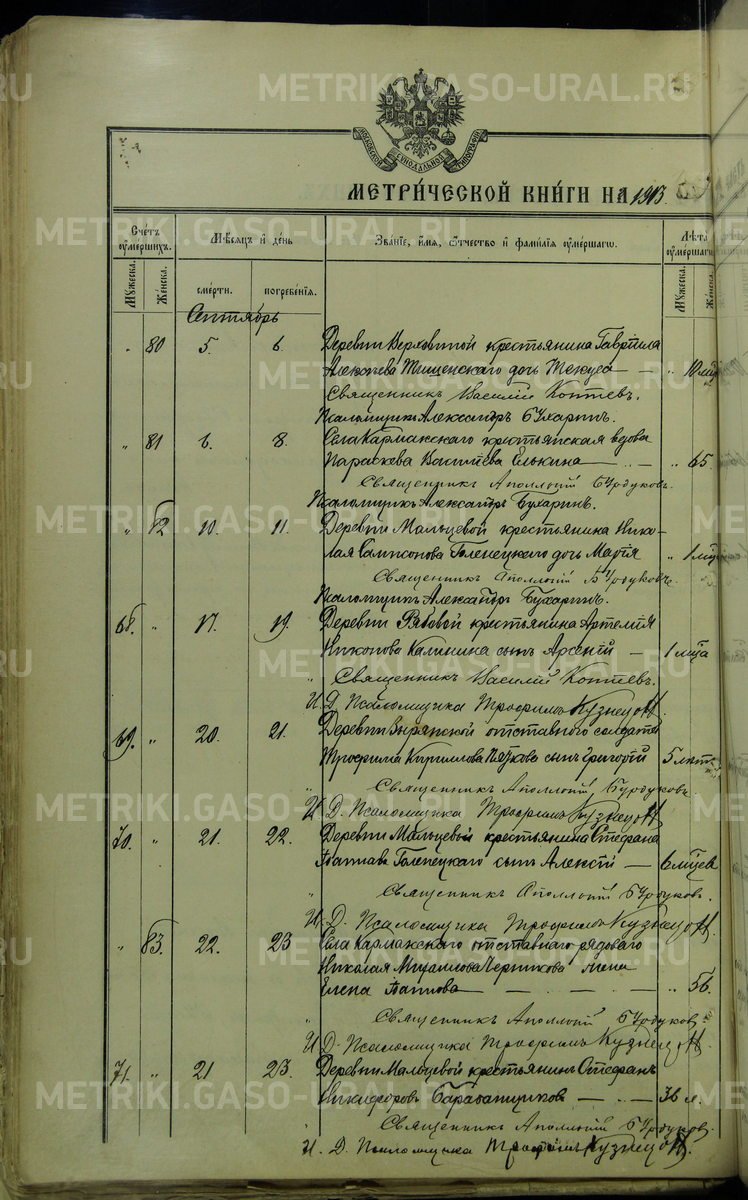 METRIKI.GASO-URAL.RU
МОСКОВСКОЙ СѴНОДАЛЬНОЙ ТИПОГРАФІИ
МЕТРИ́ЧЕСКОЙ КНИ́ГИ НА 1913.
Сче́тъ ᲂу҆ме́ршихъ.
Мѣ́сяцъ и҆ де́нь
Зва́нїе, и҆́мя, ѻ҆́тчество и҆ фами́лїя ᲂу҆ме́ршагѡ.
Лѣ́та ᲂу҆ме́ршагѡ
Му́жеска. Же́нска.
сме́рти. погребе́нїя.
Му́жеска. Же́нска.
Сентябрь
" 80 5. 6. Деревни Верховиной крестьянина Гавріила
Алексѣева Тищенскаго дочь — " 10 мц
Священникъ Василій Коптевъ.
Псаломщикъ Александръ Бухаринъ.
" 81 6. 8. Села Кармакскаго крестьянская вдова
Параскева Васильева Елькина — " 65
Священникъ Аполлоній Бурдуковъ.
Псаломщикъ Александръ Бухаринъ.
" 82 10. 11. Деревни Мальцевой крестьянина Нико-
лая Сампсонова Голенецкаго дочь Марія " 1 мц
Священникъ Аполлоній Бурдуковъ.
Псаломщикъ Александръ Бухаринъ.
68. " 17. 19. Деревни Рябовой крестьянина Артемія
Никонова Калинина сынъ Арсеній — 1 мца
" Священникъ Василій Коптевъ.
И. Д. Псаломщика Трофимъ Кузнецовъ.
69. " 20. 21. Деревни отставного солдата
Трофима Кириллова сынъ Григорій 5 лѣтъ
" Священникъ Аполлоній Бурдуковъ.
И. Д. Псаломщика Трофимъ Кузнецовъ.
70. " 21. 22. Деревни Мальцевой крестьянина Стефана
Голенецкаго сынъ Алексій — 6 мцевъ
" Священникъ Аполлоній Бурдуковъ.
И. Д. Псаломщика Трофимъ Кузнецовъ.
" 83. 22. 23 Села Кармакскаго отставнаго рядоваго
Николая Михаилова Черникова жена
Елена — — — — " 56.
" Священникъ Аполлоній Бурдуковъ
И. Д. Псаломщика Трофимъ Кузнецовъ.
71. " 21 23. Деревни Мальцевой крестьянинъ Стефанъ
Никифоровъ Барабанщиковъ — — 36 л.
" Священникъ Аполлоній Бурдуковъ.
И. Д. Псаломщика Трофимъ Кузнецовъ.